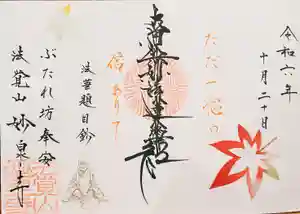 令和六年
十月二十日
ただ一心の
信ありて
南無妙法蓮華経
法華題目鈔
ぶたれ坊奉安
法覚山 妙泉寺